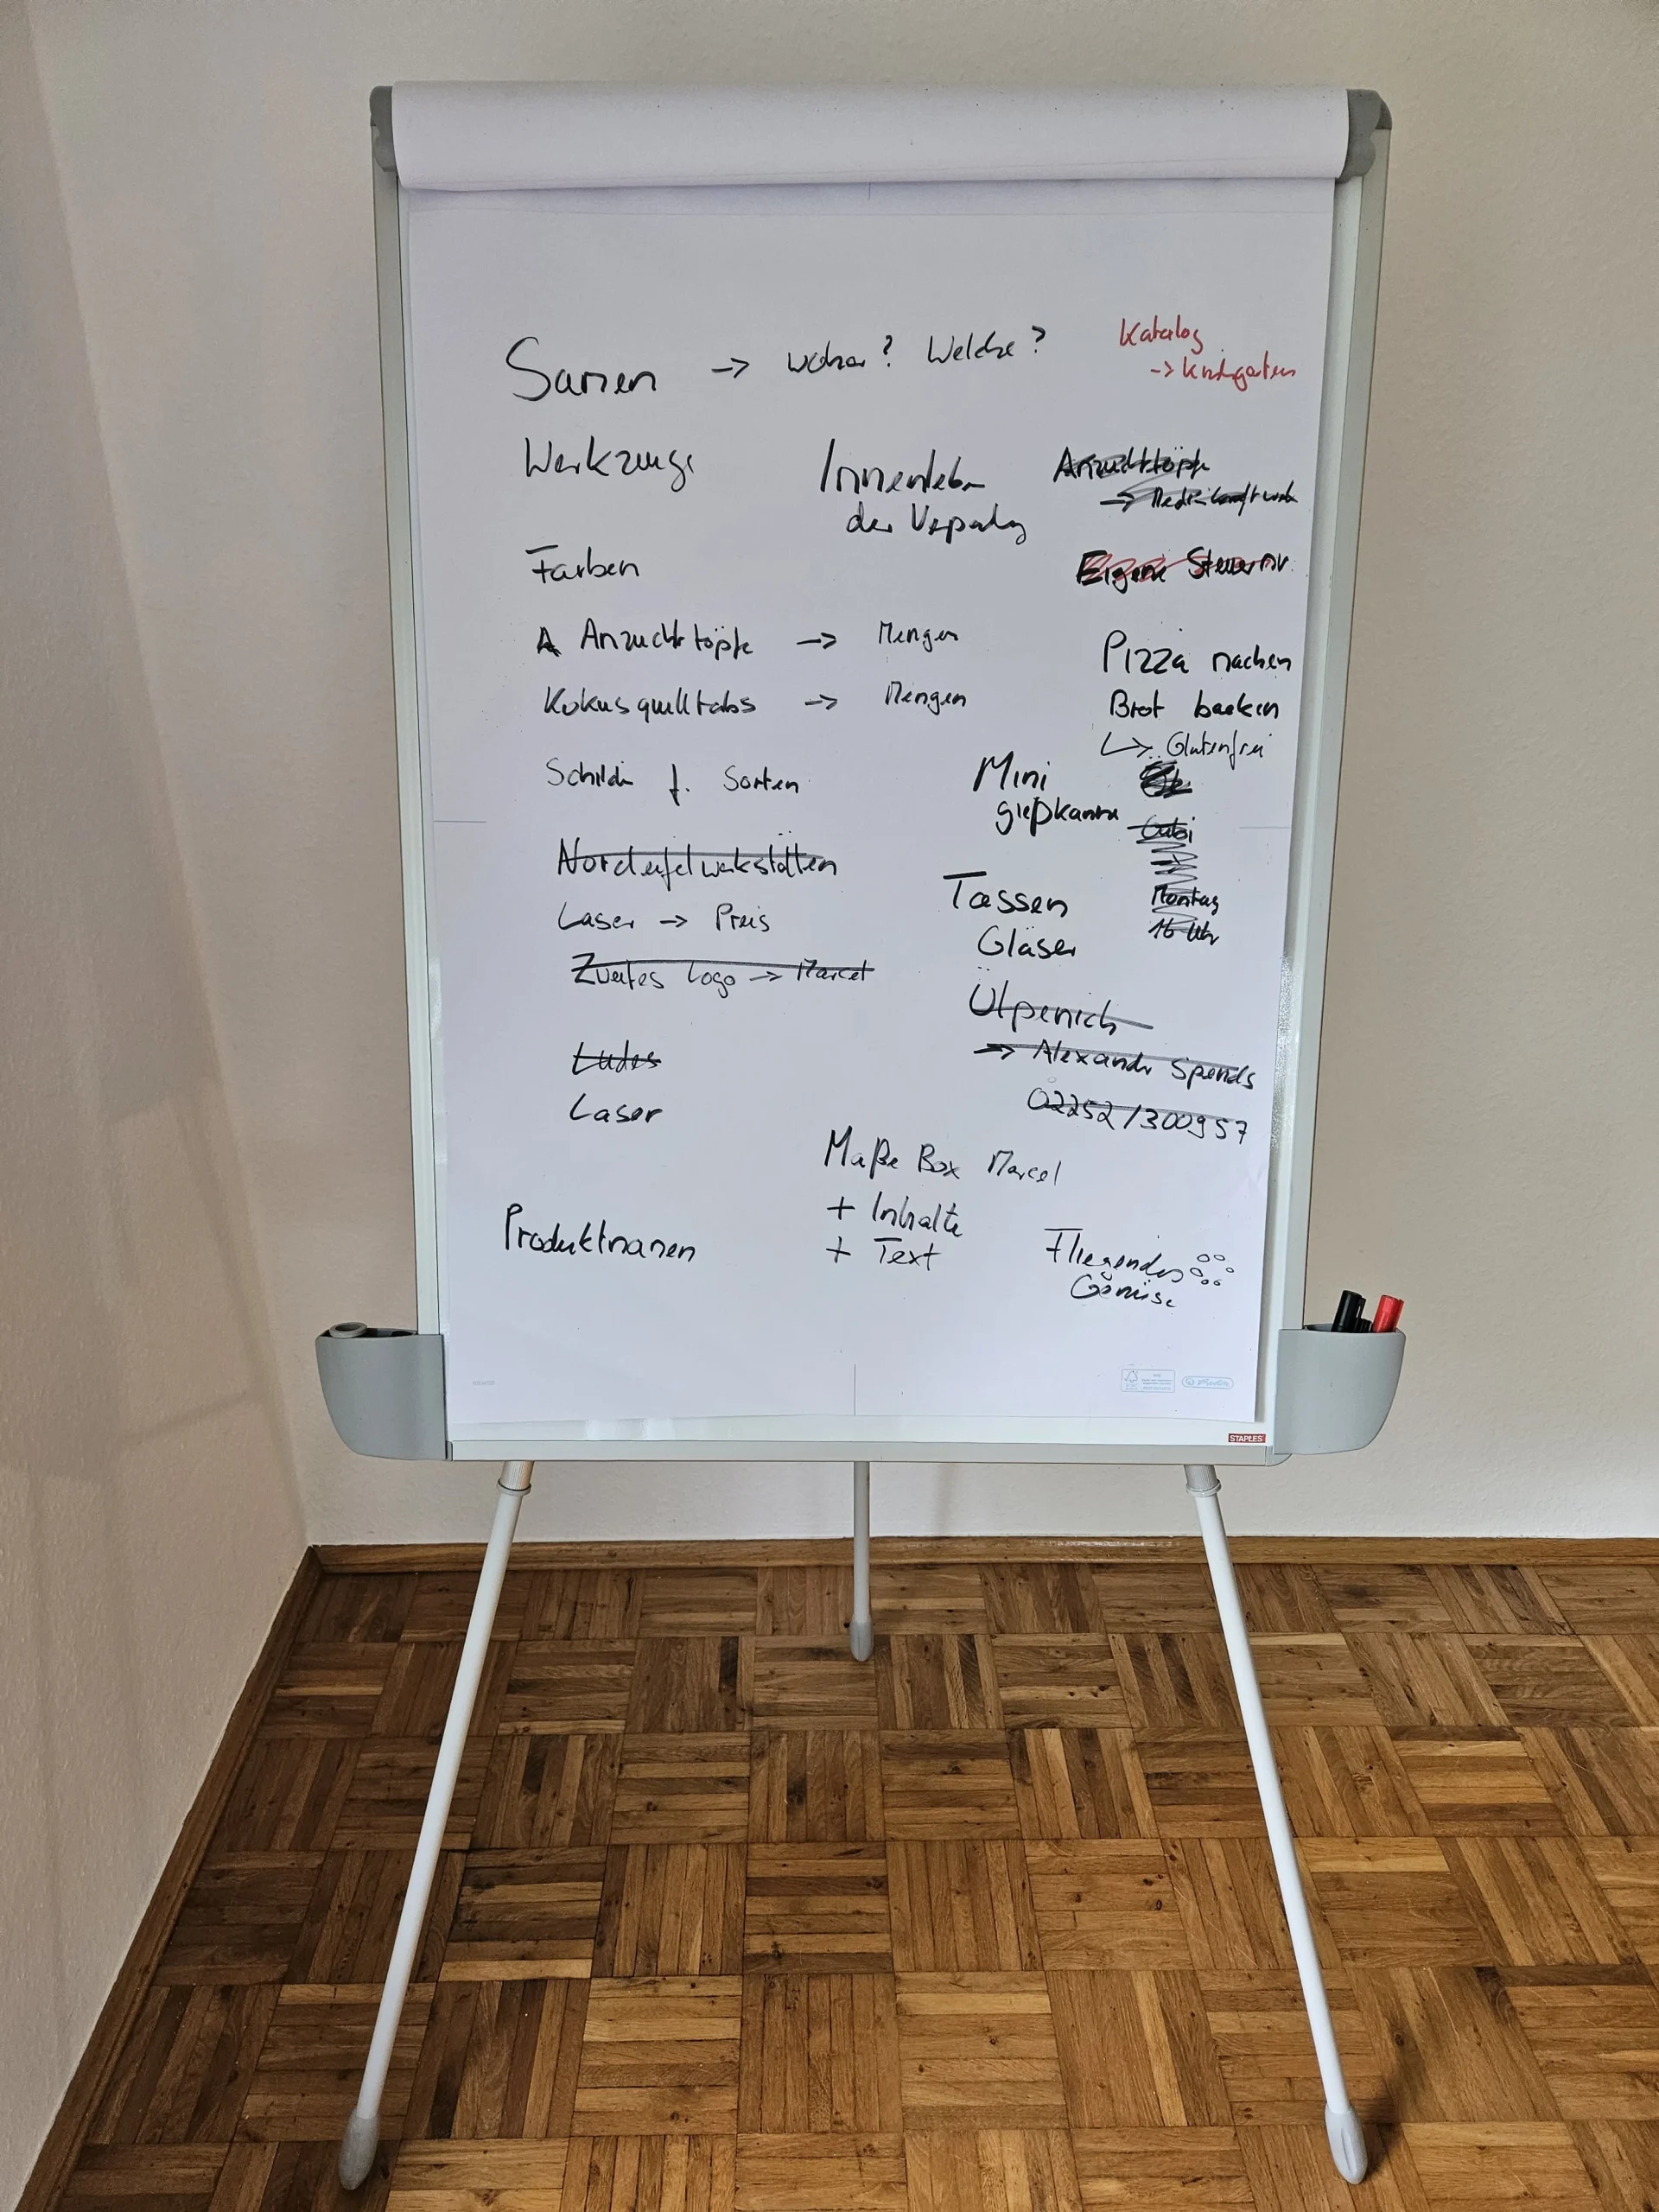 Samen → woher? Welche?
Katalog
→ Kindergarten
Werkzeuge
Innenleben
der Verpackung
Anzuchttöpfe
→
Farben
Eigene Steuernr.
A Anzuchttöpfe → Mengen
Kokusquelltabs → Mengen
Schilder f. Sorten
Pizza machen
Brot backen
↳ Glutenfrei
Mini
gießkanne
Nordeifelwerkstätten
Laser → Preis
Zweites Logo → Marcel
Montag
16 Uhr
Tassen
Gläser
Ülpenich
→ Alexander
02252/300957
Ludes
Laser
Maße Box Marcel
+ Inhalte
+ Text
Produktnamen
Fliegendes
Gemüse
STAPLES